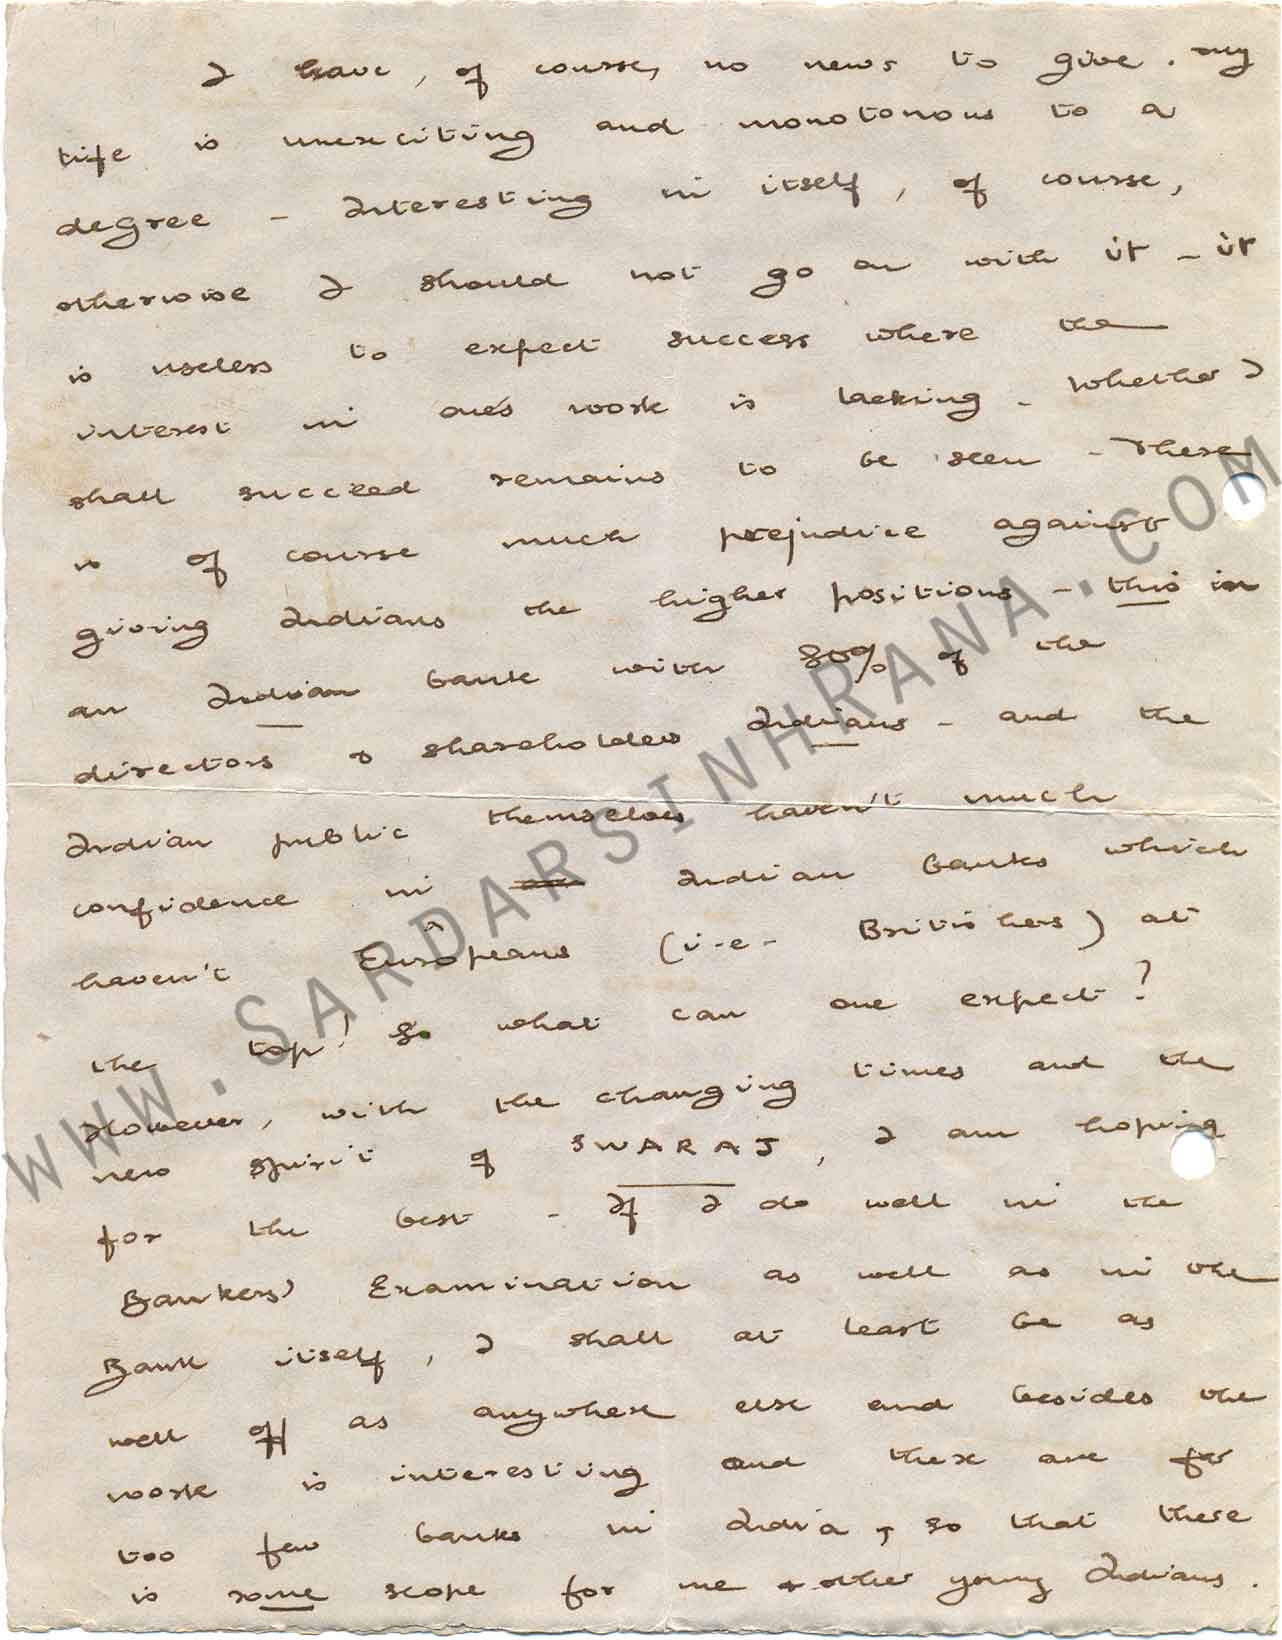 I have, of course, no news to give. my
life is unexciting and monotonous to a
degree - interesting in itself, of course,
otherwise I should not go on with it - it
is useless to expect success where the
interest in one's work is lacking - Whether I
shall succeed remains to be seen - There
is of course much prejudice against
giving Indians the higher positions - this in
an Indian bank with 80% of the
directors & shareholders Indians - and the
Indian public themselves haven't much
confidence in Indian banks which
haven't Europeans (i-e- Britishers) at
the top! So what can one expect?
However, with the changing times and the
new spirit of SWARAJ, I am hoping
for the best - If I do well in the
Bankers' Examination as well as in the
Bank itself, I shall at least be as
well off as anywhere else and besides the
work is interesting and there are far
too few banks in India, so that there
is some scope for me & other young Indians.
WWW.SARDARSINHRANA.COM